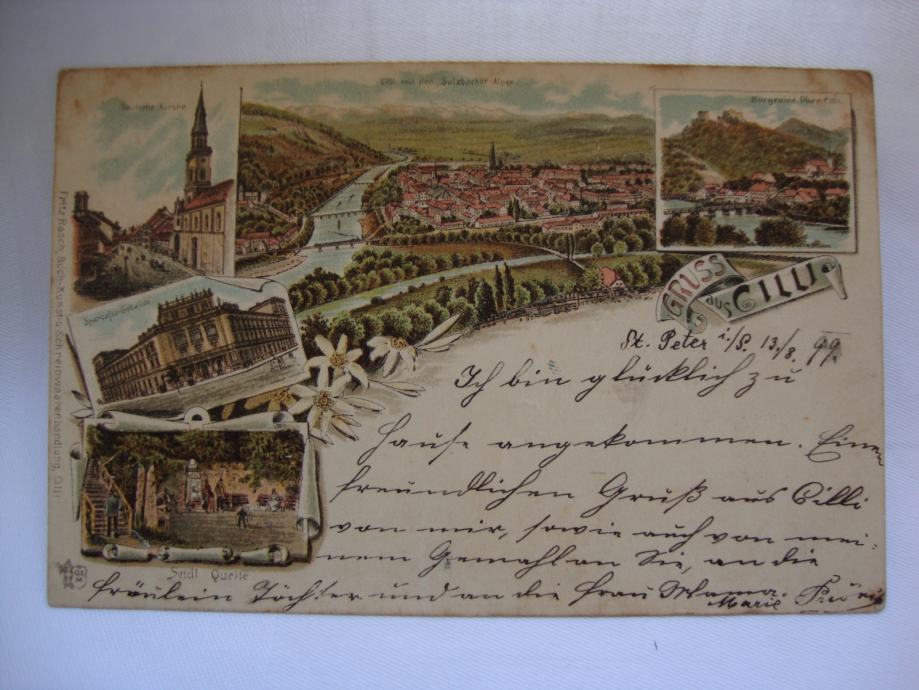 Cilli mit den Sulzbacher Alpen
Deutsche Kirche
Burgruine Ober Cilli
GRUSS
aus CILLI
Sparcasse-Gebäude
Seidl Quelle
Fritz Rasch, Buch-Kunst-& Schreibwaarenhandlung, Cilli
St. Peter i./S. 13./8. 99.
Ich bin glücklich zu
Hause angekommen. Einen
freundlichen Gruß aus Cilli
von mir, sowie auch von mei-
nem Gemahl an Sie, an die
Fräulein Töchter und an die Frau Mama.
Marie